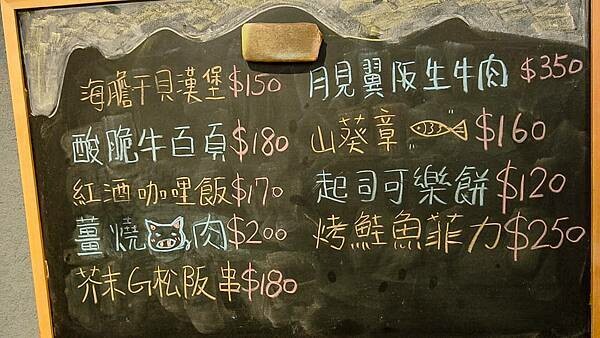 海膽干貝漢堡$150
酸脆牛百頁$180
紅酒咖哩飯$170
薑燒肉$200
芥末G松阪串$180
月見翼阪生牛肉$350
山葵章$160
起司可樂餅$120
烤鮭魚菲力$250